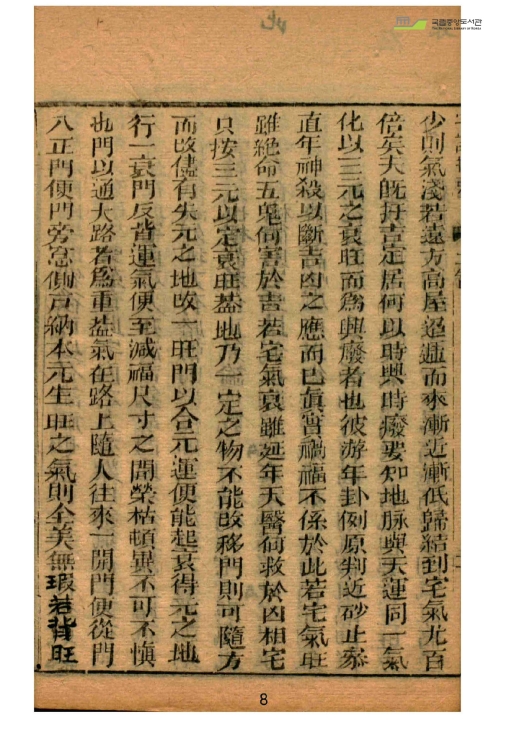 국립중앙도서관
少則氣淺若遠方高屋迢遞而來漸近漸低歸結到宅氣尤百
倍矣夫旣幷吉定居何以時興時廢要知地脉與天運同一氣
化以三元之衰旺而爲興廢者也彼游年卦例原判近砂止叅
直年神殺以斷吉凶之應而已眞實禍福不係於此若宅氣旺
雖絶命五鬼何害於吉若宅氣衰雖延年天醫何救於凶相宅
只按三元以定衰旺葢地乃一定之物不能改移門則可隨方
而改儘有失元之地改一旺門以合元運便能起衰得元之地
行一衰門反背運氣便至減福尺寸之間榮枯頓異不可不愼
也門以通大路者爲重葢氣在路上隨人往來一開門便從門
入正門便門旁宮側戶納本元生旺之氣則全美無瑕若背旺
8